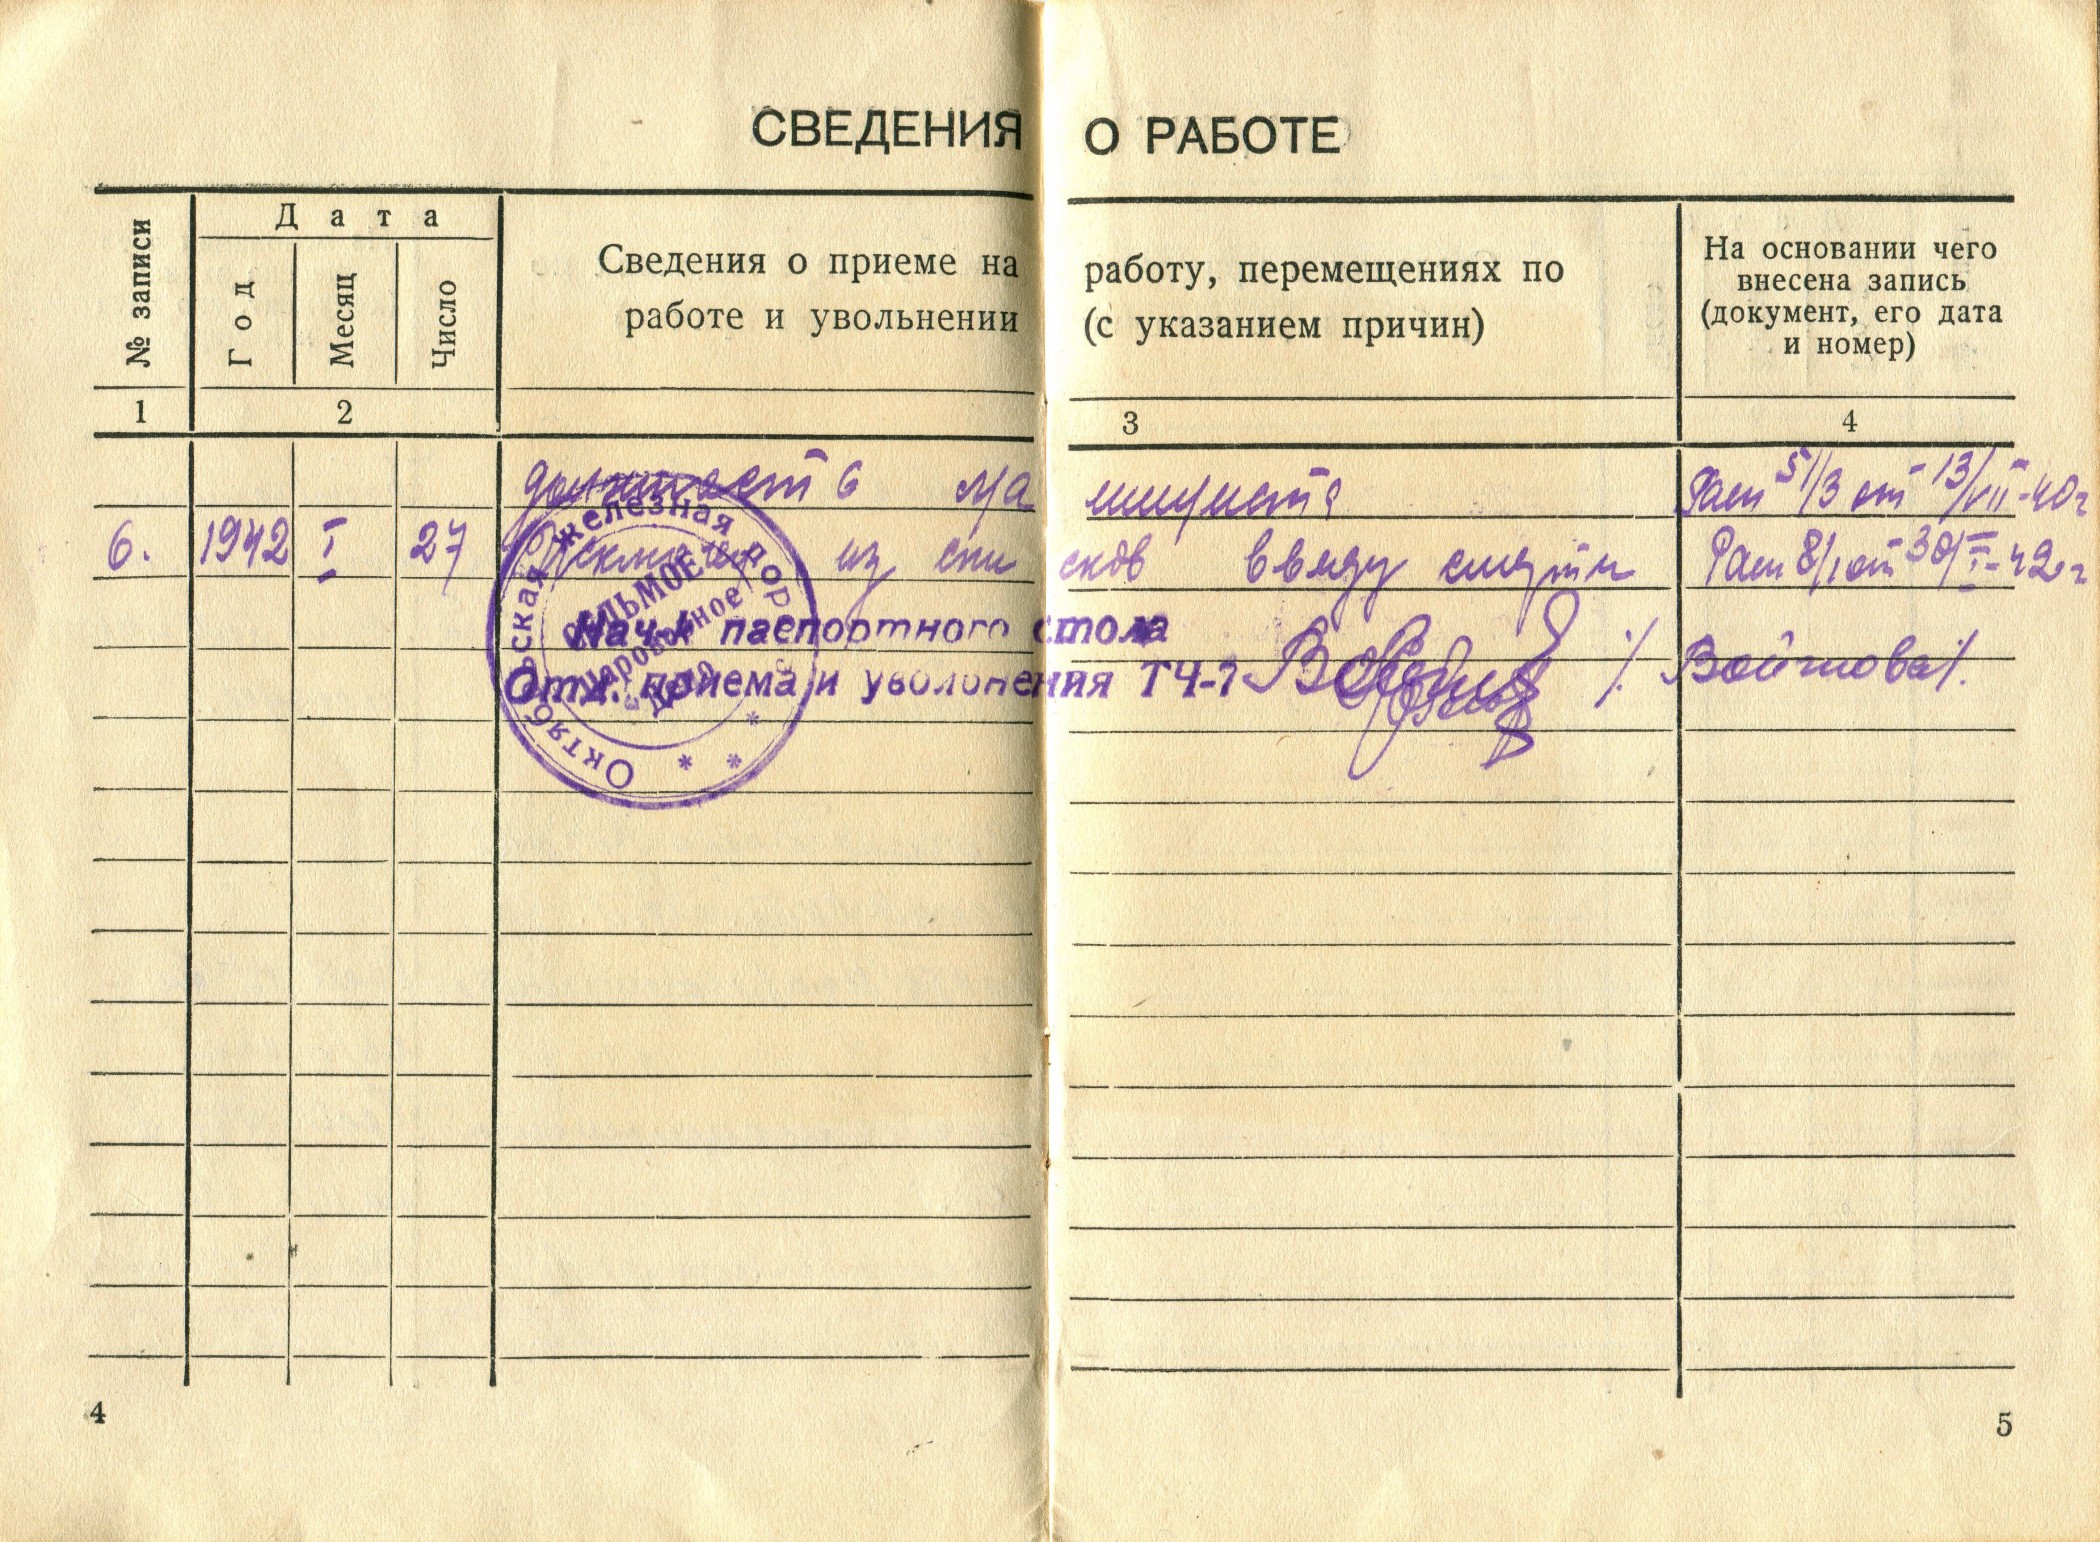 СВЕДЕНИЯ О РАБОТЕ
№ записи
Дата
Год
Месяц
Число
Сведения о приеме на работу, перемещениях по
работе и увольнении (с указанием причин)
На основании чего
внесена запись
(документ, его дата
и номер)
1 2 3 4
должность машиниста 51/3 от 13/VII-40г
6. 1942 I 27 Исключен из списков ввиду смерти 8/1 от 30/I-42г
Нач-к паспортного стола
Отд. приема и увольнения ТЧ-7 /Войтова/.
Октябрьская железная дор
СЕДЬМОЕ
паровозное
депо
4
5